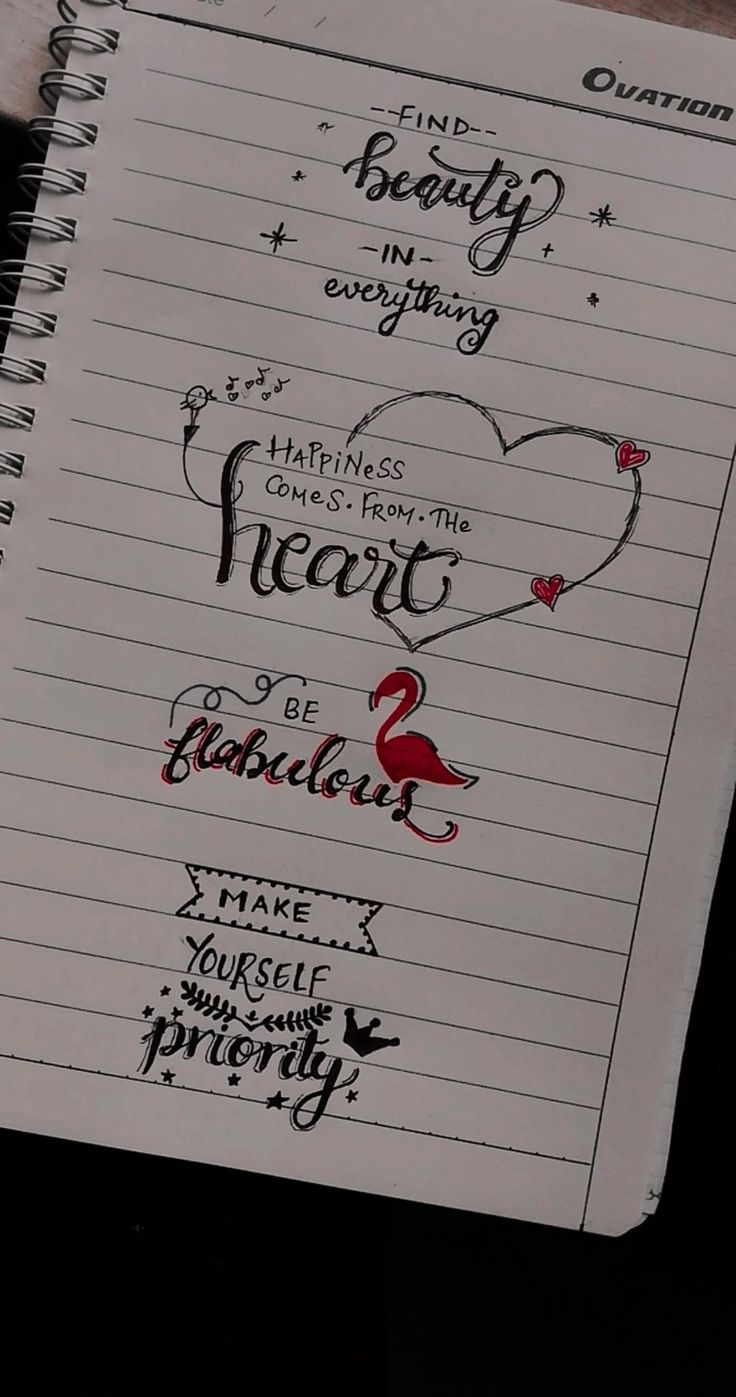 OVATION
--FIND--
beauty
-IN-
everything
HAPPiNeSS
COMeS. FROM. THe
heart
BE
flabulous
MAKE
YOURSELF
priority